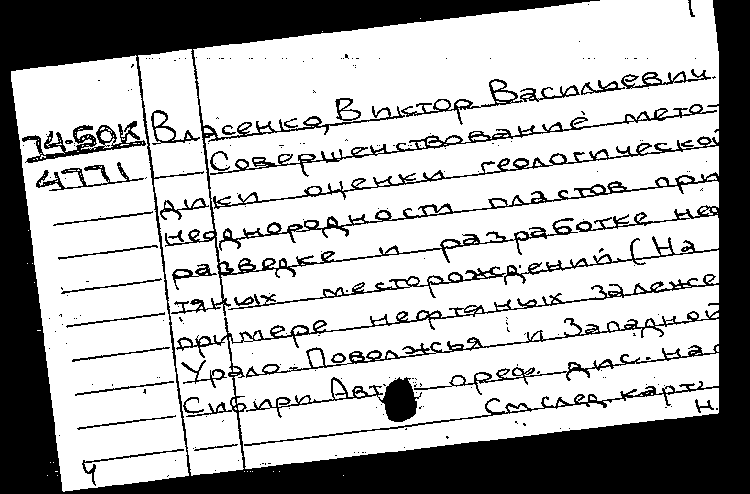 74-БОК Власенко, Виктор Васильевич
4771 Совершенствование мето-
дики оценки геологической
неоднородности пластов при
разведке и разработке неф
тяных месторождений. (На
примере нефтяных залеже
Урало-Поволжья и Западной
Сибири. Авт ореф. дис. на с
См след. карт.
Н.
ч